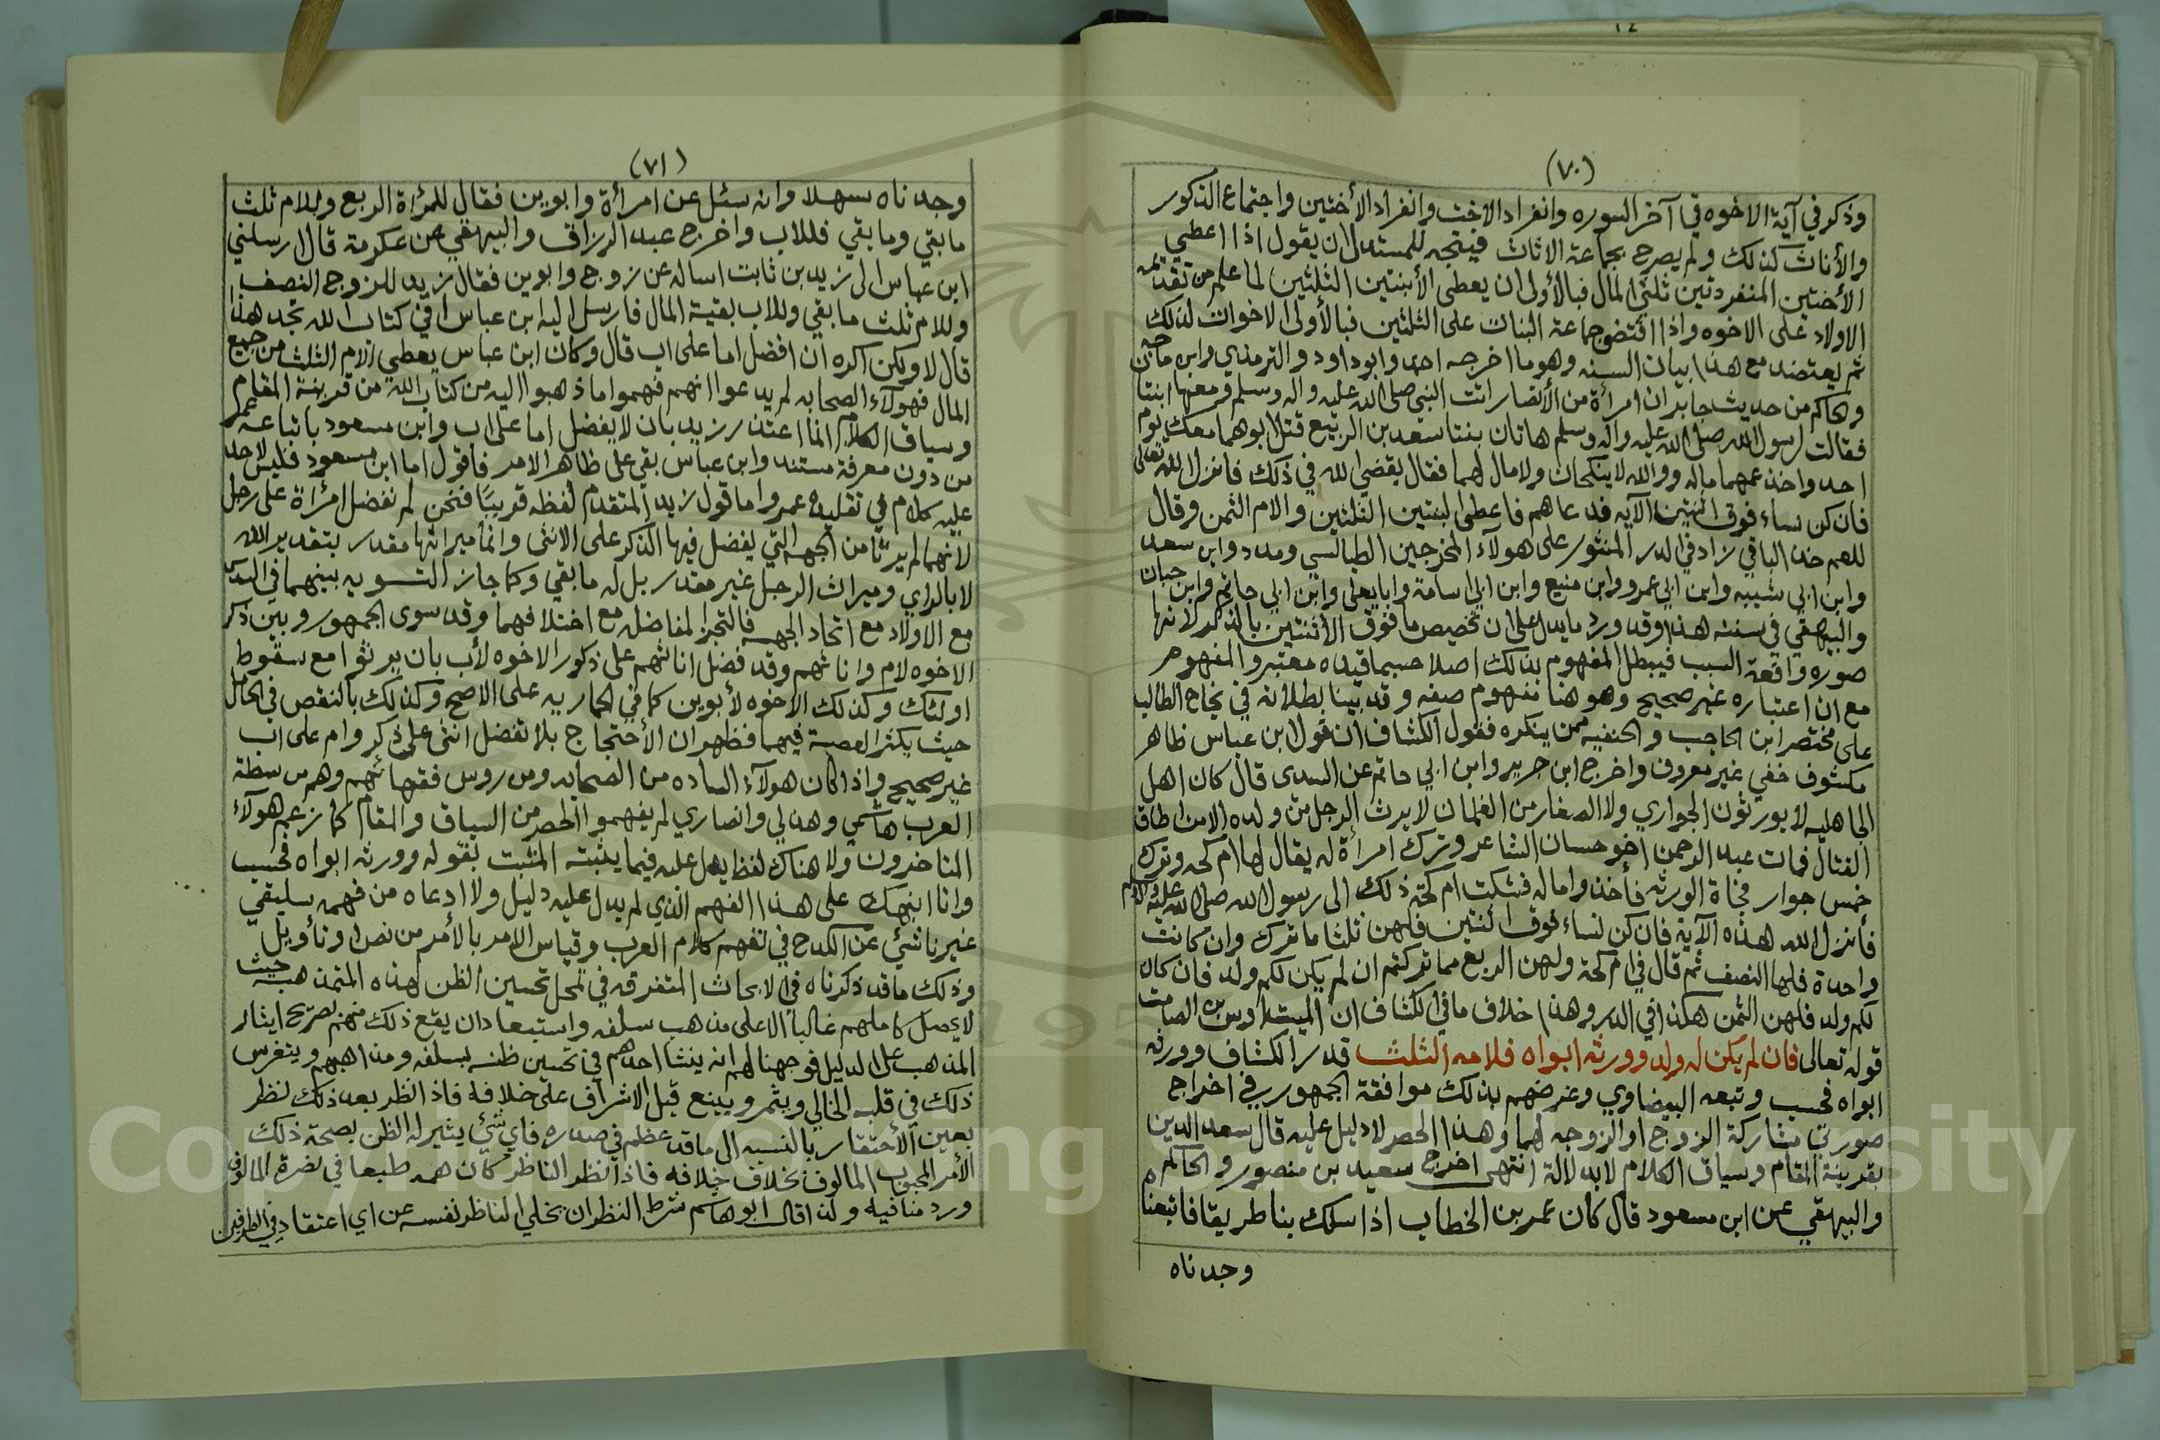 (٧٠)
وذكر في آية الاخوه في آخر السوره وانفراد الاخت وانفراد الأختين واجتماع الذكور
والأناث كذلك ولم يصرح بجماعة الاناث فيتجه للمستدل ان يقول اذا اعطي
الأختين المنفردتين ثلثي المال فبالأولى ان يعطى الأبنتين الثلثين لما علم من تقدم
الاولاد على الاخوه واذا اقتصر جماعة البنات على الثلثين فبالأولى الاخوات لذلك
ثم يعتضد مع هذا بيان السنه وهو ما اخرجه احمد وابو داود والترمذي وابن ماجه
والحاكم من حديث جابر ان امرأة من الأنصار اتت النبي صلى الله عليه واله وسلم ومعها ابنتا
فقالت لرسول الله صلى الله عليه واله وسلم هاتان بنتا سعد بن الربيع قتل ابوهما معك يوم
احد واخذ عمهما ماله ووالله لا ينكحان ولا مال لهما فقال يقضي الله في ذلك فانزل الله تعالى
فان كن نساء فوق اثنتين الآيه فدعاهم فاعطى البنتين الثلثين والام الثمن وقال
للعم خذ الباقي زاد في الدر المنثور على هولآء المخرجين الطيالسي ومسدد وابن سعد
وابن ابي شيبه وابن ابي عمر وابن منيع وابن ابي اسامة وابا يعلى وابن ابي حاتم وابن حبان
والبيهقي في سننه هذا وقد ورد ما يدل على ان تخصيص ما فوق الأثنتين بالذكر لانها
صوره واقعة السبب فيبطل المفهوم بذلك اصلا حسبما قيده معتبرو المفهوم
مع ان اعتباره غير صحيح وهو هنا مفهوم صفه وقد بينا بطلانه في نجاح الطالب
على مختصر ابن الحاجب والحنفيه ممن ينكره فقول الكشاف ان قول ابن عباس ظاهر
مكشوف خفي غير معروف واخرج ابن جرير وابن ابي حاتم عن السدى قال كان اهل
الجاهليه لا يورثون الجواري ولا الصغار من الغلمان لا يرث الرجل من ولده الا من اطاق
القتال فمات عبد الرحمن اخو حسان الشاعر وترك امرأة له يقال لها ام كحه وترك
خمس جوار فجاة الورثه فأخذوا ماله فشكت ام كحة ذلك الى رسول الله صلى الله عليه واله وسلم
فأنزل الله هذه الآية فان كن نساء فوق اثنتين فلهن ثلثا ما ترك وان كانت
واحدة فلها النصف ثم قال في ام كحة ولهن الربع مما تركتم ان لم يكن لكم ولد فان كان
لكم ولد فلهن الثمن هكذا في الدر وهذا خلاف ما في الكشاف ان الميت اوس بن الصامت
قوله تعالى فان لم يكن له ولد وورثه ابواه فلامه الثلث قدر الكشاف وورثه
ابواه فحسب وتبعه البيضاوي وغرضهم بذلك موافقة الجمهور في اخراج
صورتي مشاركة الزوج او الزوجه لهما وهذا الحصر لا دليل عليه قال سعد الدين
بقرينة المقام وسياق الكلام لا بدلالة انتهى اخرج سعيد بن منصور والحاكم
والبيهقي عن ابن مسعود قال كان عمر بن الخطاب اذا سلك بنا طريقا فاتبعناه
وجدناه
(٧١)
وجدناه سهلا وانه سئل عن امرأة وابوين فقال للمرأة الربع وللام ثلث
ما بقي وما بقي فللاب واخرج عبد الرزاق والبيهقي عن عكرمة قال ارسلني
ابن عباس الى زيد بن ثابت اساله عن زوج وابوين فقال زيد للزوج النصف
وللام ثلث ما بقي وللاب بقية المال فارسل اليه ابن عباس افي كتاب الله تجد هذا
قال لا ولكن اكره ان افضل اما على اب قال وكان ابن عباس يعطي الام الثلث من جميع
المال فهولآء الصحابه لم يدعوا انهم فهموا ما ذهبوا اليه من كتاب الله من قرينة المقام
وسياق الكلام انما اعتذر زيد بان لا يفضل اما على اب وابن مسعود باتباعه عمر
من دون معرفة مستند وابن عباس بقي على ظاهر الامر فاقول اما ابن مسعود فليس لاحد
عليه كلام في تقليده عمر واما قول زيد المتقدم لفظه قريبًا فنحن لم نفضل امرأة على رجل
لأنهما لم يرثا من الجهه التي يفضل فيها الذكر على الانثى وانما ميراثها مقدر بتقدير الله
لا بالراي وميراث الرجل غير مقدر بل له ما بقي وكما جاز التسويه بينهما في السدس
مع الاولاد مع اتحاد الجهه فالتجز المفاضله مع اختلافهما وقد سوى الجمهور وبين ذكر
الاخوه لام واناثهم وقد فضل اناثهم على ذكور الاخوه لأب بان يرثوا مع سقوط
اولئك وكذلك الاخوه لأبوين كما في الحماريه على الاصح وكذلك بالنقص في الحال
حيث يكثر العصبة فيهما فظهر ان الأحتجاج بلا تفضل انثى على ذكر وام على اب
غير صحيح واذا كان هولآء الساده من الصحابه ومن روس فقهائهم وهم من سطة
العرب هاشمي وهذلي وانصاري لم يفهموا الحصر من السياق والمقام كما زعم هولآء
المتاخرون ولا هناك لفظ يدل عليه فيما يثبته المثبت بقوله وورثه ابواه فحسب
وانا انبهك على هذا الفهم الذي لم يدل عليه دليل ولا ادعاه من فهمه سليقي
غير ناشئ عن الكدح في تفهم كلام العرب وقياس الامر بالأمر من نص او تأويل
وذلك ما قد ذكرناه في الابحاث المتفرقه في لمحل تحسين الظن لهذه المتمذهبه حيث
لا يحصل كاملهم غالباً الا على مذهب سلفه واستبعاد ان يقع ذلك منهم تصريح ايثار
المذهب على الدليل فوجهنا لهم انه ينشا احدهم في تحسين ظنه بسلفه ومذاهبهم وينغرس
ذلك في قلبه الخالي ويثمر ويينع قبل الاشراف على خلافه فاذ انظر بعد ذلك نظر
بعين الأحتقار بالنسبه الى ما قد عظم في صدره فاي شئ يثير له الظن بصحة ذلك
الأمر المجوب المالوف بخلاف خلافه فاذا نظر الناظر كان همه طبعا في نصرة المالوف
ورد منافيه ولذا قال ابو هاشم شرط النظر ان يخلي الناظر نفسه عن اي اعتقاد في الطرفين
Copyright © King Saud University